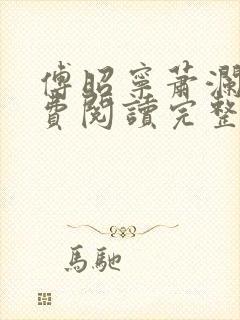 傅昭寧蕭瀾
費閱讀完整
馬馳